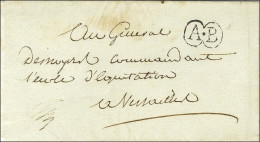 Au General
A.B
Desnoyers Commandant
l'ecole d'equitation
a Versailles